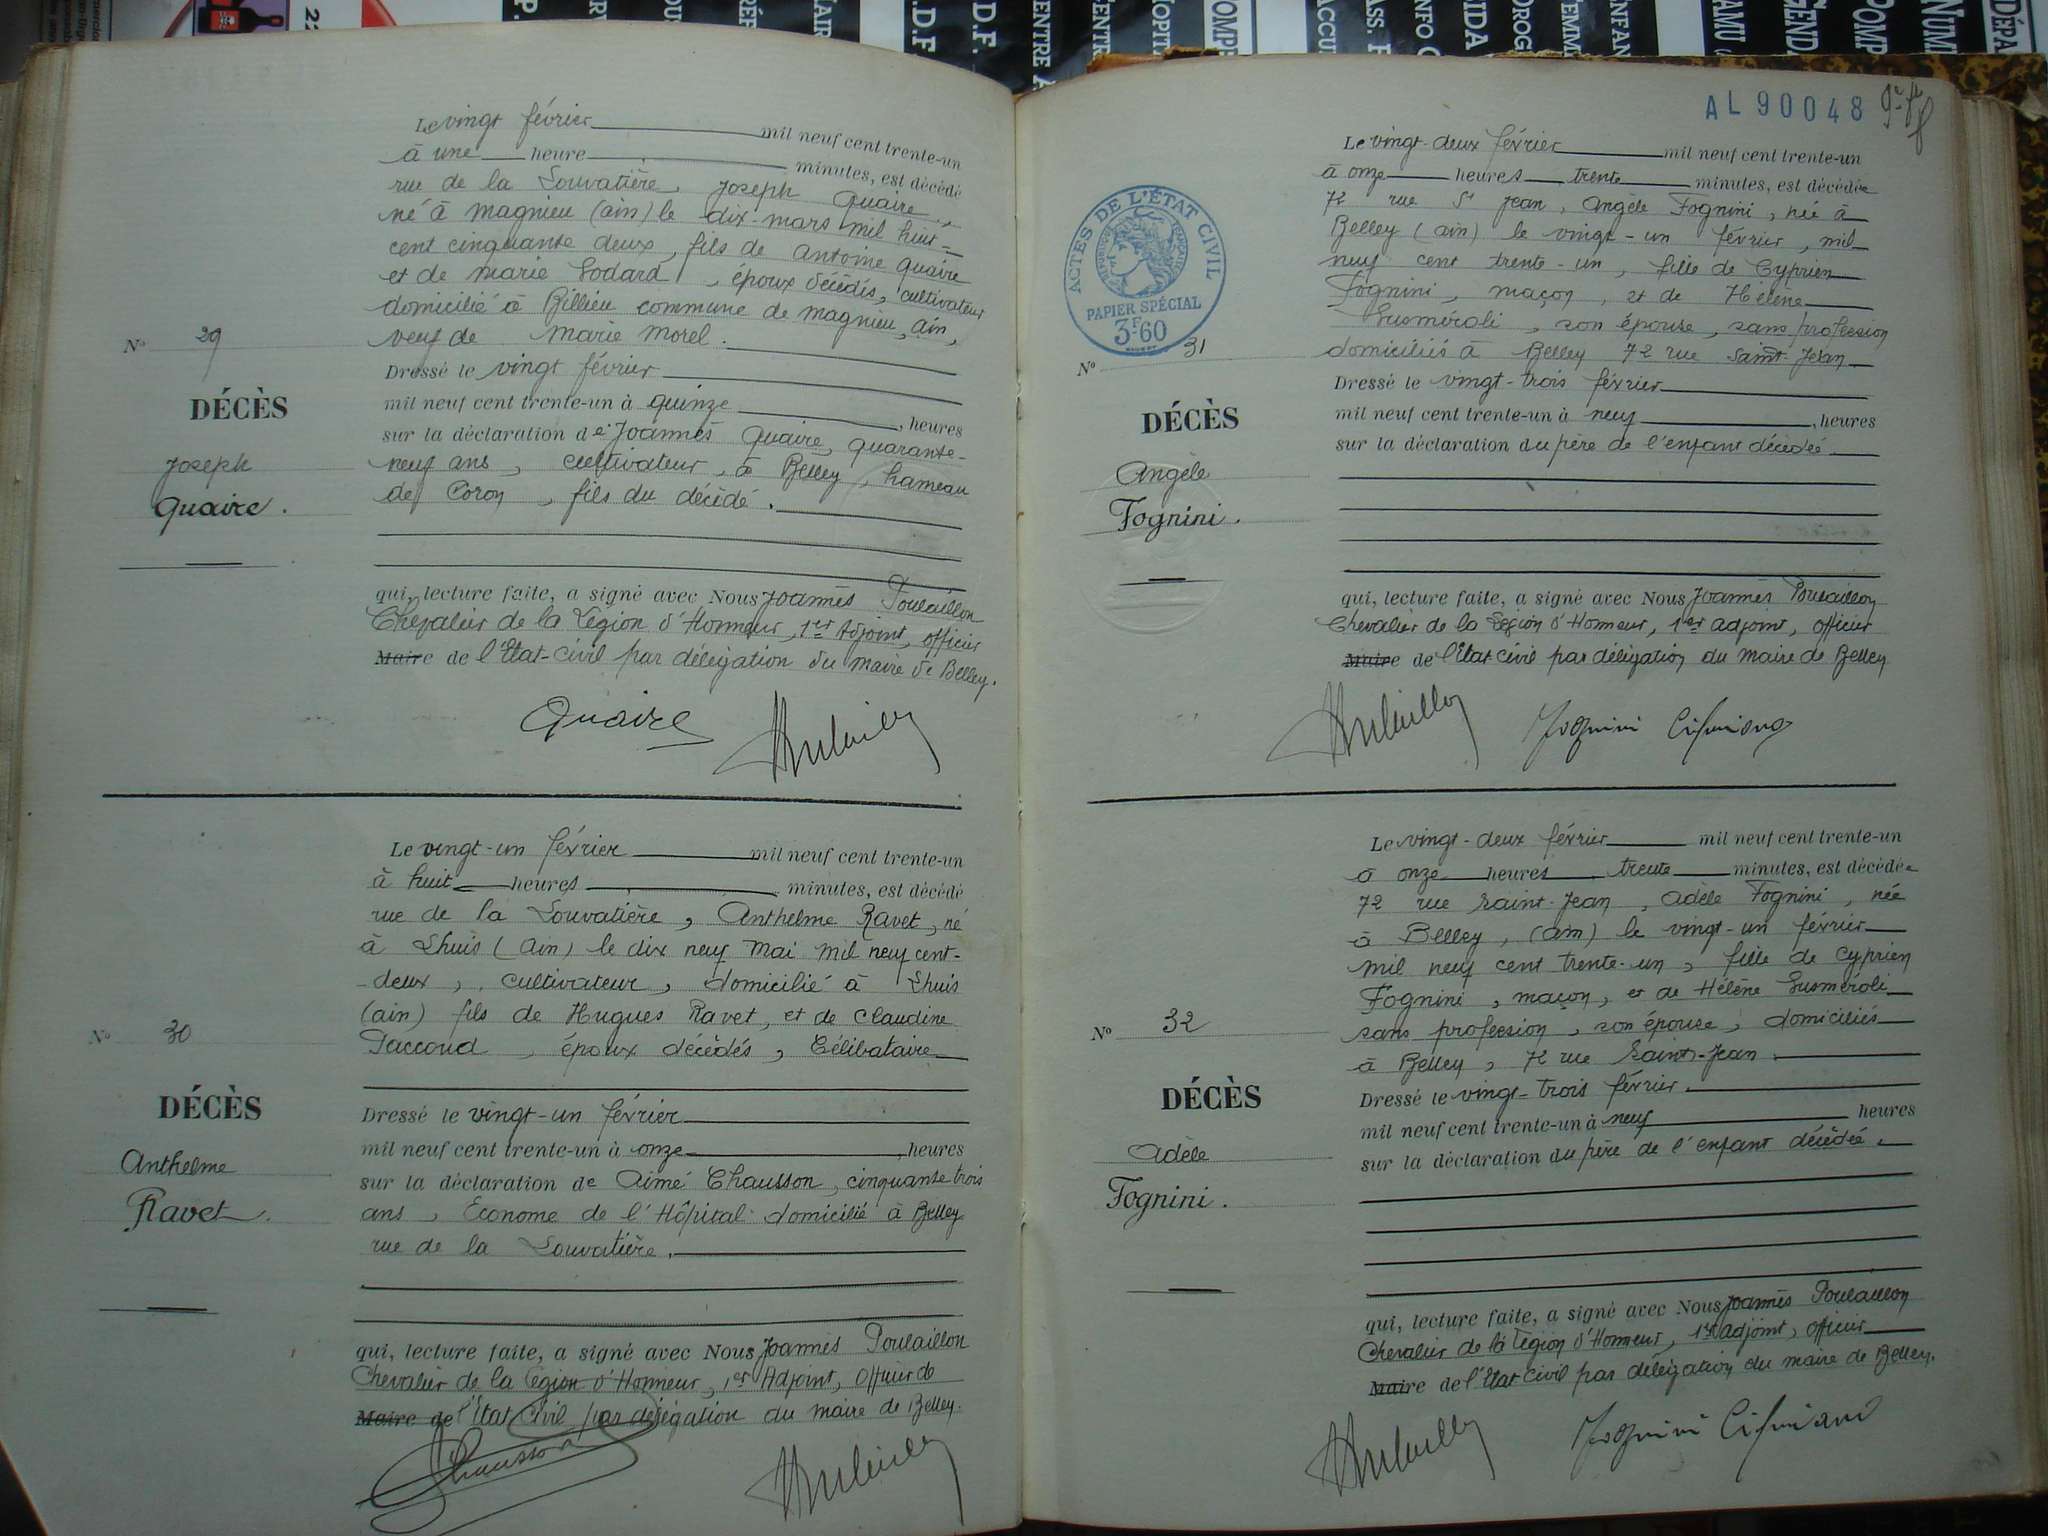 Le vingt février mil neuf cent trente-un
à une heure minutes, est décédé
rue de la Louvatière, Joseph Quaire,
né à Magnieu (ain) le dix mars mil huit-
cent cinquante deux, fils de Antoine Quaire
et de Marie Godard, époux décédés, cultivateur
domicilié à Billieu commune de Magnieu, ain,
veuf de Marie Morel.
Nº 29
Dressé le vingt février
mil neuf cent trente-un à quinze, heures
DÉCÈS
sur la déclaration de Joannès Quaire, quarante-
Joseph
neuf ans, cultivateur, à Belley, hameau
Quaire.
de Coron, fils du décédé.
qui, lecture faite, a signé avec Nous Joannès Poulaillon
Chevalier de la Légion d'Honneur, 1er Adjoint, officier
Maire de l'Etat-Civil par délégation du maire de Belley.
Quaire
Le vingt-un février mil neuf cent trente-un
à huit heures minutes, est décédé
rue de la Louvatière, Anthelme Ravet, né
à Lhuis (Ain) le dix neuf Mai mil neuf cent-
-deux, cultivateur, domicilié à Lhuis
(ain) fils de Hugues Ravet, et de Claudine
Paccoud, époux décédés, Célibataire
Nº 30
DÉCÈS
Dressé le vingt-un février
mil neuf cent trente-un à onze, heures
Anthelme
sur la déclaration de Aimé Chausson, cinquante trois
Ravet.
ans, Econome de l'Hôpital domicilié à Belley
rue de la Louvatière.
qui, lecture faite, a signé avec Nous Joannès Poulaillon
Chevalier de la Légion d'Honneur, 1er Adjoint, Officier de
Maire de l'Etat Civil par délégation du maire de Belley.
Chausson
AL 90048
ACTES DE L'ÉTAT CIVIL
RÉPUBLIQUE FRANÇAISE
PAPIER SPÉCIAL
3F60
Le vingt-deux février mil neuf cent trente-un
à onze heures trente minutes, est décédée
72 rue St Jean, Angèle Fognini, née à
Belley (ain) le vingt-un février, mil
neuf cent trente-un, fille de Cyprien
Fognini, maçon, et de Hélène
Susméroli, son épouse, sans profession
Nº 31
domiciliés à Belley 72 rue Saint Jean
Dressé le vingt-trois février
DÉCÈS
mil neuf cent trente-un à neuf, heures
sur la déclaration du père de l'enfant décédée
Angèle
Fognini.
qui, lecture faite, a signé avec Nous Joannès Poulaillon
Chevalier de la Légion d'Honneur, 1er adjoint, officier
Maire de l'Etat Civil par délégation du Maire de Belley
Le vingt-deux février mil neuf cent trente-un
à onze heures trente minutes, est décédée
72 rue Saint-Jean, Adèle Fognini, née
à Belley, (ain) le vingt-un février
mil neuf cent trente-un, fille de Cyprien
Fognini, maçon, et de Hélène Susméroli
Nº 32
sans profession, son épouse, domiciliés
à Belley, 72 rue Saint-Jean.
DÉCÈS
Dressé le vingt-trois février.
mil neuf cent trente-un à neuf heures
Adèle
sur la déclaration du père de l'enfant décédée.
Fognini.
qui, lecture faite, a signé avec Nous Joannès Poulaillon
Chevalier de la Légion d'Honneur, 1er adjoint, officier
Maire de l'Etat Civil par délégation du maire de Belley.